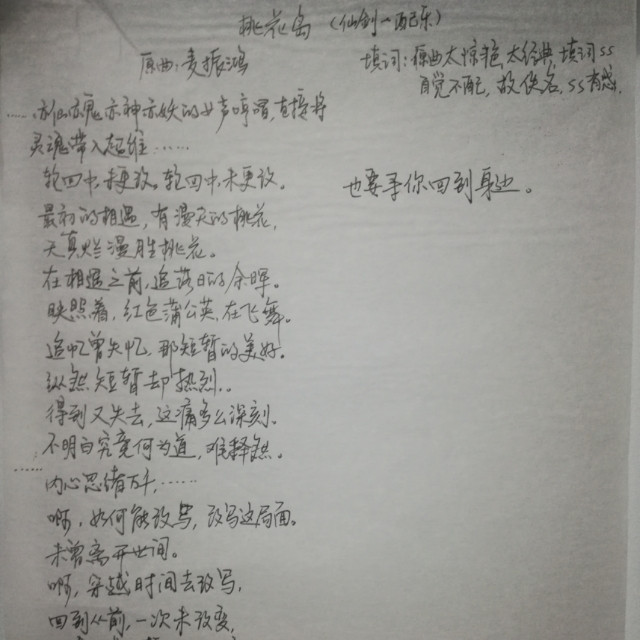 桃花岛（仙剑一配乐）
原曲：麦振鸿
填词：原曲太惊艳 太经典，填词ss
自觉不配，故佚名，ss有感.
……亦仙亦魔亦神亦妖的女声哼唱，直接将
灵魂带入起维……
轮回中，未更改，轮回中，未更改。
也要寻你回到身边。
最初的相遇，有漫天的桃花，
天真烂漫胜桃花。
在相遇之前，追落日的余晖。
映照着，红色蒲公英，在飞舞。
追忆曾失忆，那短暂的美好。
纵然短暂却热烈..
得到又失去，这痛多么深刻.
不明白究竟何为道，难释然.
……内心思绪万千，……
啊，如何能改写，改写这局面。
未曾离开世间。
啊，穿越时间去改写，
回到从前，一次未改变，